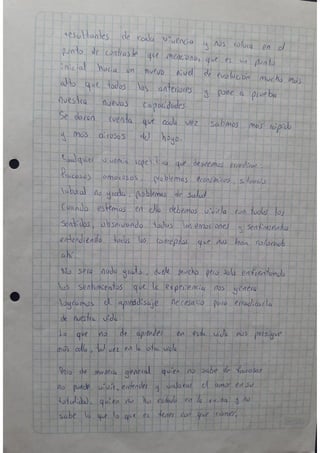 resultantes de cada vivencia y nos coloca en el
punto de contraste que menciono, que es un punto
inicial hacia un nuevo nivel de evolución mucho más
alto que todos los anteriores y pone a prueba
nuestra nuevas capacidades
Se darán cuenta que cada vez salimos más rápido
y más airosos del hoyo.
Cualquier vivencia repetitiva que deseemos
fracasos amorosos, problemas económicos,
laboral no grata, problemas de salud
Cuando estemos en ella debemos vivirla con todos los
sentidos, observando todas las emociones y sentimientos
entendiendo todos los conceptos que nos han colocado
ahí.
No será nada grato, duele mucho pero solo enfrentando
los sentimientos que la experiencia nos genera
logramos el aprendizaje necesario para erradicarla
de nuestra vida
Lo que no de aprender en esta vida nos persigue
más allá, tal vez en la otra vida
Pero de manera general quien no sabe de fracasar
no puede vivir, entender y valorar el amor en su
totalidad, quien no ha estado en la y no
sabe lo que lo que es tener con que comer,